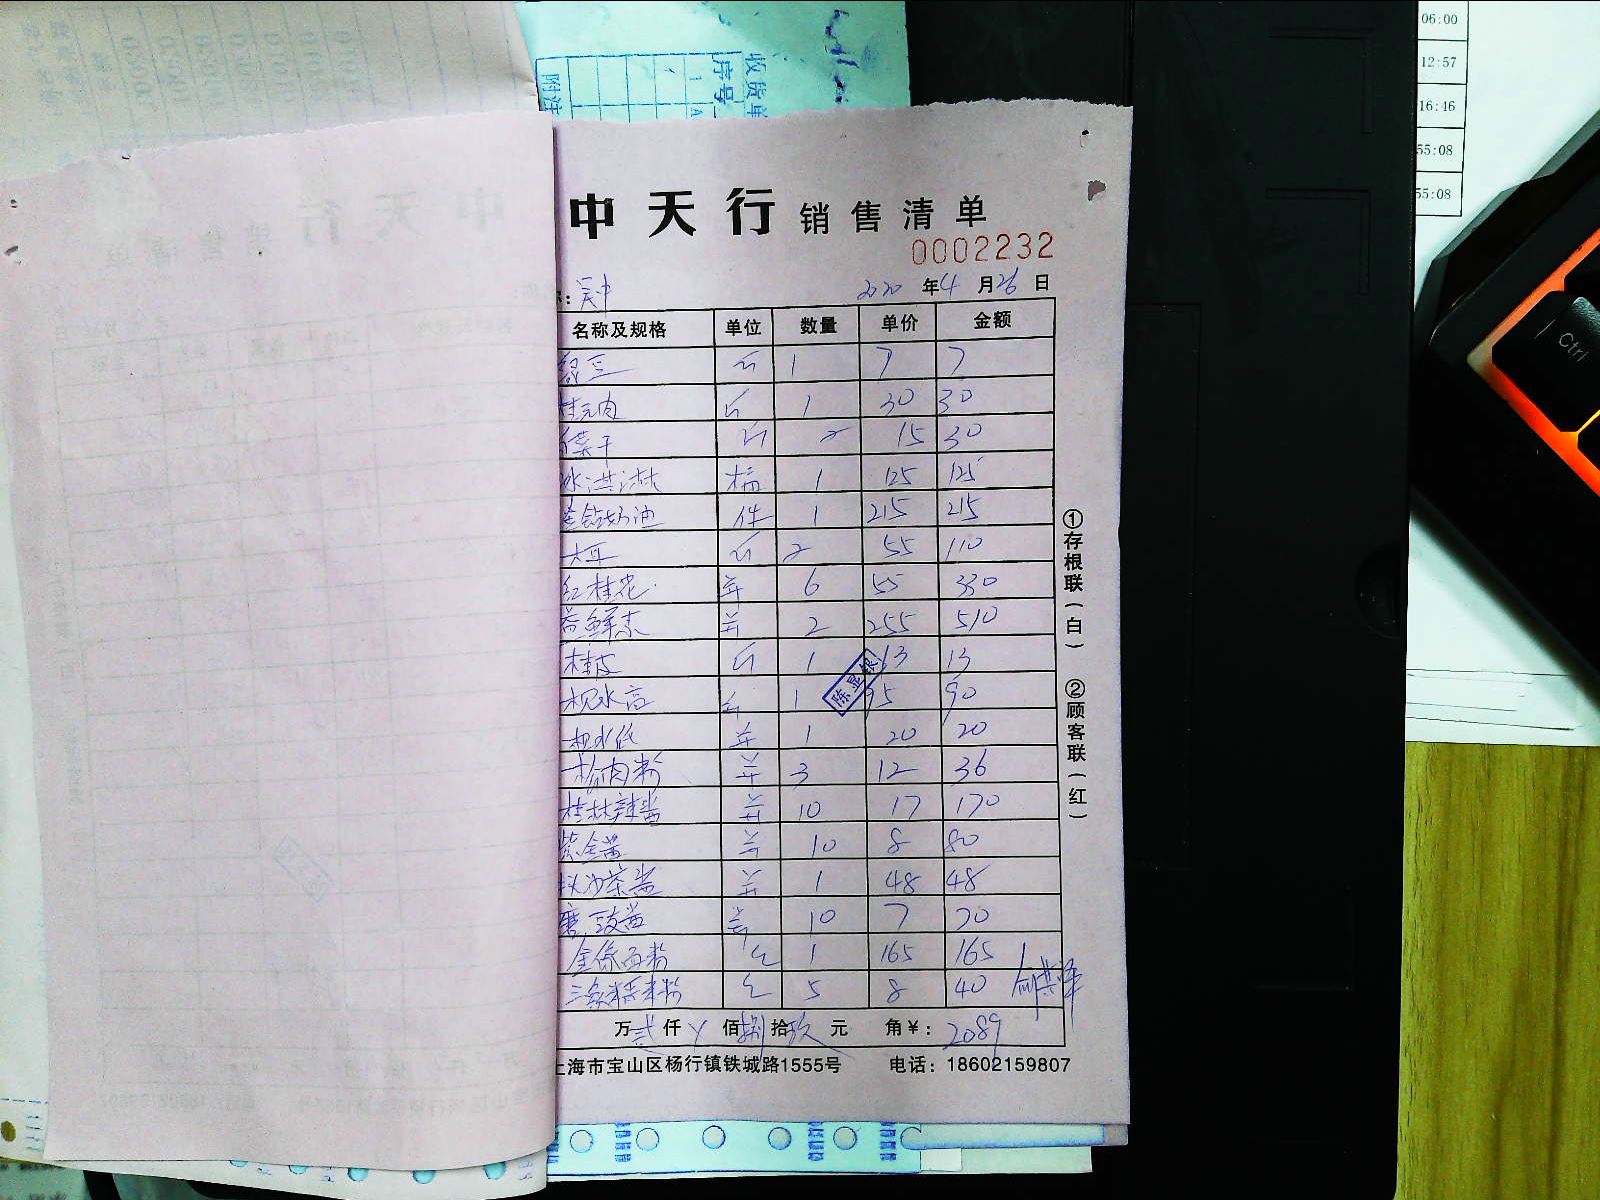 06:00
12:57
16:46
55:08
55:08
收货单
序号 1
附注
中天行 销售清单
0002232
2020 年 4 月 26 日
名称及规格 单位 数量 单价 金额
绿豆 斤 1 7 7
桂元肉 斤 1 30 30
干 斤 2 15 30
冰淇淋 桶 1 125 125
金钻奶油 件 1 215 215
斤 2 55 110
红桂花 6 55 330
益鲜素 2 255 510
桂皮 斤 1 13 13
枧水高 1 95 90
枧水低 1 20 20
嫩肉粉 3 12 36
桂林辣酱 10 17 170
紫金酱 10 8 80
沙茶酱 1 48 48
豉酱 10 7 70
金像面粉 包 1 165 165
三象糯米粉 包 5 8 40
万 贰 仟 佰 捌 拾 玖 元 角 ¥: 2089
上海市宝山区杨行镇铁城路1555号 电话: 18602159807
①存根联(白) ②顾客联(红)
Ctrl